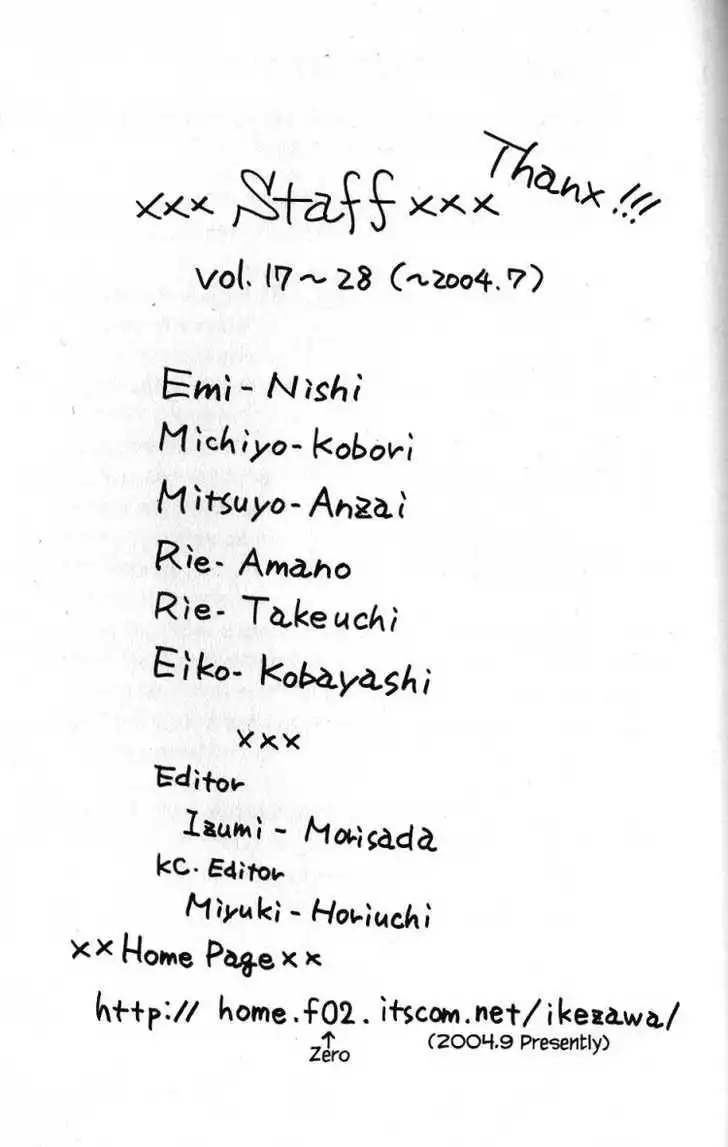 Thanx!!!
xxx Staff xxx
vol. 17～28 (～2004.7)
Emi - Nishi
Michiyo - Kobori
Mitsuyo - Anzai
Rie - Amano
Rie - Takeuchi
Eiko - Kobayashi
xxx
Editor
Izumi - Morisada
KC. Editor
Miyuki - Horiuchi
xx Home Page xx
http:// home.f02.itscom.net/ikezawa/
↑
Zero
(2004.9 Presently)